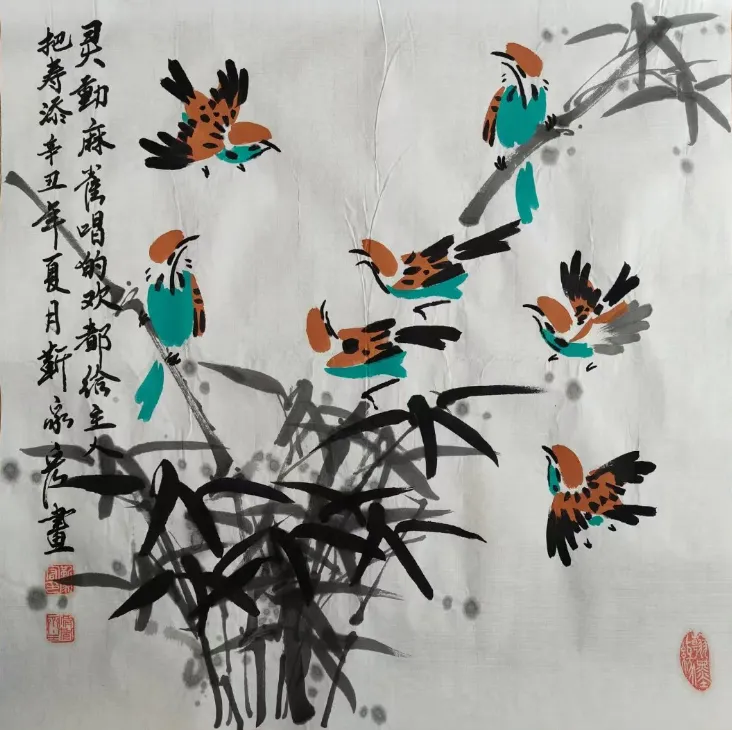 灵動麻雀唱的欢都给主人
把寿添辛丑年夏月靳家彦畫